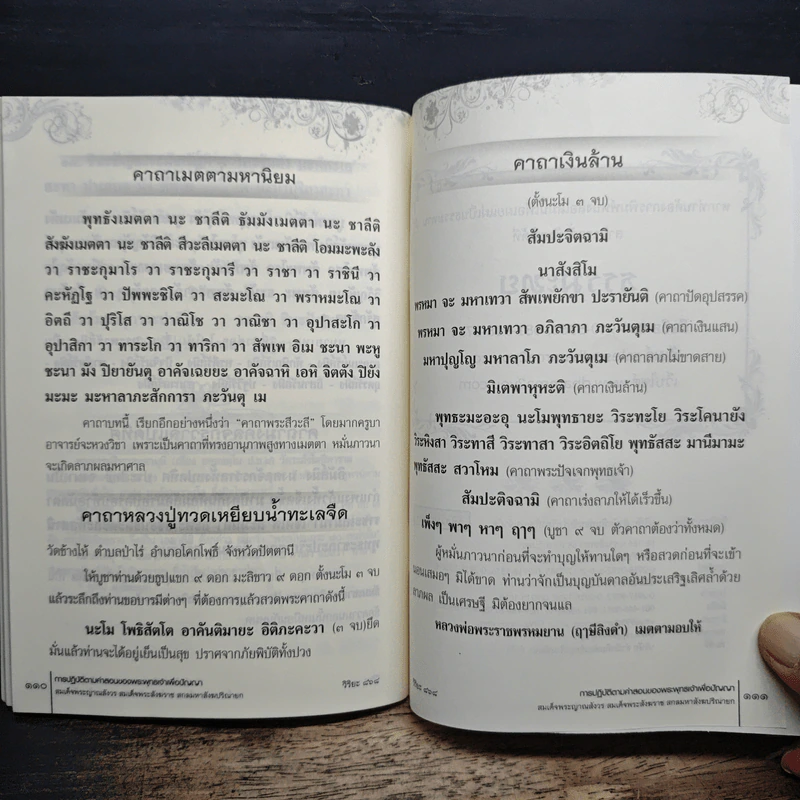 คาถาเมตตามหานิยม
พุทธังเมตตา นะ ชาลีติ ธัมมังเมตตา นะ ชาลีติ
สังฆังเมตตา นะ ชาลีติ สีวะลีเมตตา นะ ชาลีติ โอมมะพะลัง
วา ราชะกุมาโร วา ราชะกุมารี วา ราชา วา ราชินี วา
คะหัฏโฐ วา ปัพพะชิโต วา สะมะโณ วา พราหมะโณ วา
อิตถี วา ปุริโส วา วาณิโช วา วาณิชา วา อุปาสะโก วา
อุปาสิกา วา ทาระโก วา ทาริกา วา สัพเพ อิเม ชะนา พะหู
ชะนา มัง ปิยายันตุ อาคัจเฉยยะ อาคัจฉาหิ เอหิ จิตตัง ปิยัง
มะมะ มะหาลาภะสักการา ภะวันตุ เม
คาถาบทนี้ เรียกอีกอย่างหนึ่งว่า “คาถาพระสีวะลี” โดยมากครูบา
อาจารย์จะหวงวิชา เพราะเป็นคาถาที่ทรงอานุภาพสูงทางเมตตา หมั่นภาวนา
จะเกิดลาภผลมหาศาล
คาถาหลวงปู่ทวดเหยียบน้ำทะเลจืด
วัดช้างให้ ตำบลป่าไร่ อำเภอโคกโพธิ์ จังหวัดปัตตานี
ให้บูชาท่านด้วยธูปแขก ๙ ดอก มะลิขาว ๙ ดอก ตั้งนะโม ๓ จบ
แล้วระลึกถึงท่านขอบารมีต่างๆ ที่ต้องการแล้วสวดพระคาถาดังนี้
นะโม โพธิสัตโต อาคันติมายะ อิติภะคะวา (๓ จบ)ยึด
มั่นแล้วท่านจะได้อยู่เย็นเป็นสุข ปราศจากภัยพิบัติทั้งปวง
๑๑๐
การปฏิบัติตามคำสอนของพระพุทธเจ้าเพื่อปัญญา
สมเด็จพระญาณสังวร สมเด็จพระสังฆราช สกลมหาสังฆปริณายก
วิริยะ ๘๖๘
คาถาเงินล้าน
(ตั้งนะโม ๓ จบ)
สัมปะจิตฉามิ
นาสังสิโม
พรหมา จะ มหาเทวา สัพเพยักขา ปะรายันติ (คาถาปัดอุปสรรค)
พรหมา จะ มหาเทวา อภิลาภา ภะวันตุเม (คาถาเงินแสน)
มหาปุญโญ มหาลาโภ ภะวันตุเม (คาถาลาภไม่ขาดสาย)
มิเตพาหุหะติ (คาถาเงินล้าน)
พุทธะมะอะอุ นะโมพุทธายะ วิระทะโย วิระโคนายัง
วิระหิงสา วิระทาสี วิระทาสา วิระอิตถิโย พุทธัสสะ มานีมามะ
พุทธัสสะ สวาโหม (คาถาพระปัจเจกพุทธเจ้า)
สัมปะติจฉามิ (คาถาเร่งลาภให้ได้เร็วขึ้น)
เพ็งๆ พาๆ หาๆ ฤาๆ (บูชา ๙ จบ ตัวคาถาต้องว่าทั้งหมด)
ผู้หมั่นภาวนาก่อนที่จะทำบุญให้ทานใดๆ หรือสวดก่อนที่จะเข้า
นอนเสมอๆ มิได้ขาด ท่านว่าจักเป็นบุญบันดาลอันประเสริฐเลิศล้ำด้วย
ลาภผล เป็นเศรษฐี มิต้องยากจนแล
หลวงพ่อพระราชพรหมยาน (ฤาษีลิงดำ) เมตตามอบให้
วิริยะ ๘๖๘
การปฏิบัติตามคำสอนของพระพุทธเจ้าเพื่อปัญญา
สมเด็จพระญาณสังวร สมเด็จพระสังฆราช สกลมหาสังฆปริณายก
๑๑๑